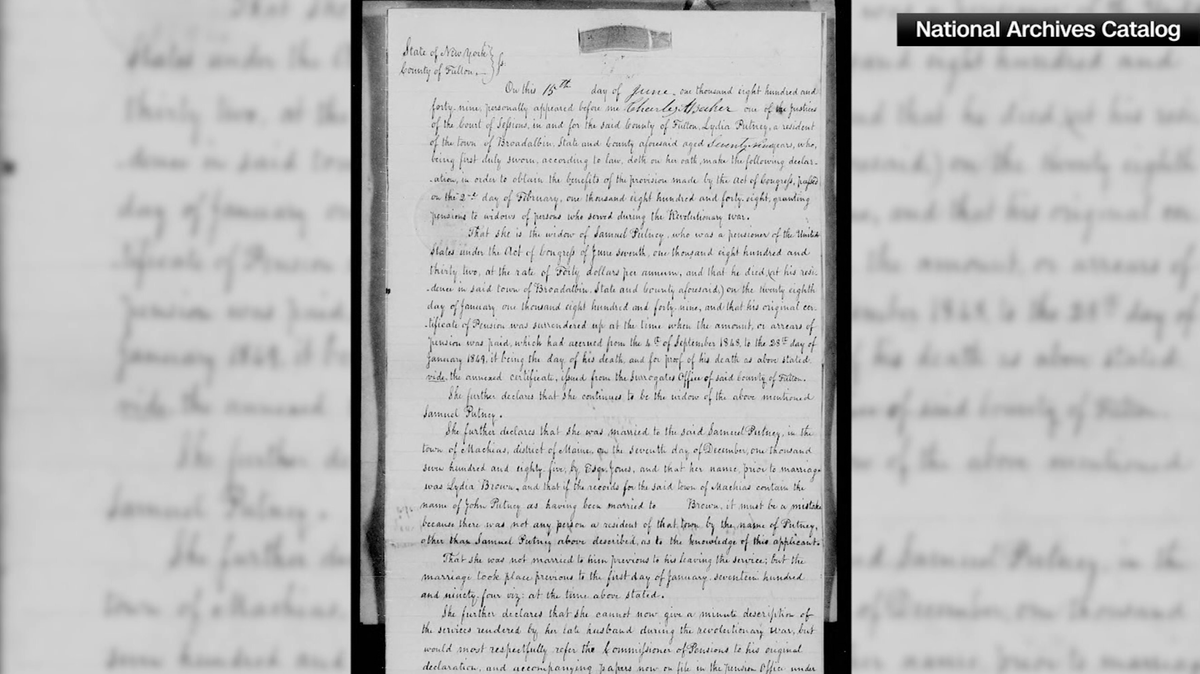 National Archives Catalog
State of New York
County of Fulton.
On this 15th day of June, one thousand eight hundred and
forty-nine, personally appeared before me one of the Justices
of the Court of Sessions, in and for the said County of Fulton, Lydia Putney, a resident
of the town of Broadalbin, State and County aforesaid aged years, who,
being first duly sworn, according to law, doth on her oath, make the following declar-
-ation, in order to obtain the benefits of the provision made by the Act of Congress, passed
on the 2nd day of February, one thousand eight hundred and forty-eight, granting
pensions to widows of persons who served during the Revolutionary war.
That she is the widow of Samuel Putney, who was a pensioner of the United
States under the Act of Congress of June seventh, one thousand eight hundred and
thirty two, at the rate of Forty dollars per annum, and that he died, (at his resi-
-dence in said town of Broadalbin, State and County aforesaid,) on the twenty eighth
day of January one thousand eight hundred and forty-nine, and that his original cer-
-tificate of Pension was surrendered up at the time when the amount, or arrears of
pension was paid, which had accrued from the 4th of September 1848, to the 28th day of
January 1849, it being the day of his death, and for proof of his death as above stated,
vide the annexed certificate, issued from the Surrogates Office of said County of Fulton.
She further declares that she continues to be the widow of the above mentioned
Samuel Putney.
She further declares that she was married to the said Samuel Putney, in the
town of Machias, district of Maine, on the seventh day of December, one thousand
seven hundred and eighty-five, by Esqr. Jones, and that her name, prior to marriage
was Lydia Brown, and that if the records for the said town of Machias contain the
name of John Putney as having been married to Brown, it must be a mistake
because there was not any person a resident of that town by the name of Putney,
other than Samuel Putney above described, as to the knowledge of this applicant.
That she was not married to him previous to his leaving the service; but the
marriage took place previous to the first day of January, seventeen hundred
and ninety-four viz: at the time above stated.
She further declares that she cannot now give a minute description of
the services rendered by her late husband during the revolutionary war, but
would most respectfully refer the Commissioner of Pensions to his original
declaration, and accompanying papers now on file in the pension Office under